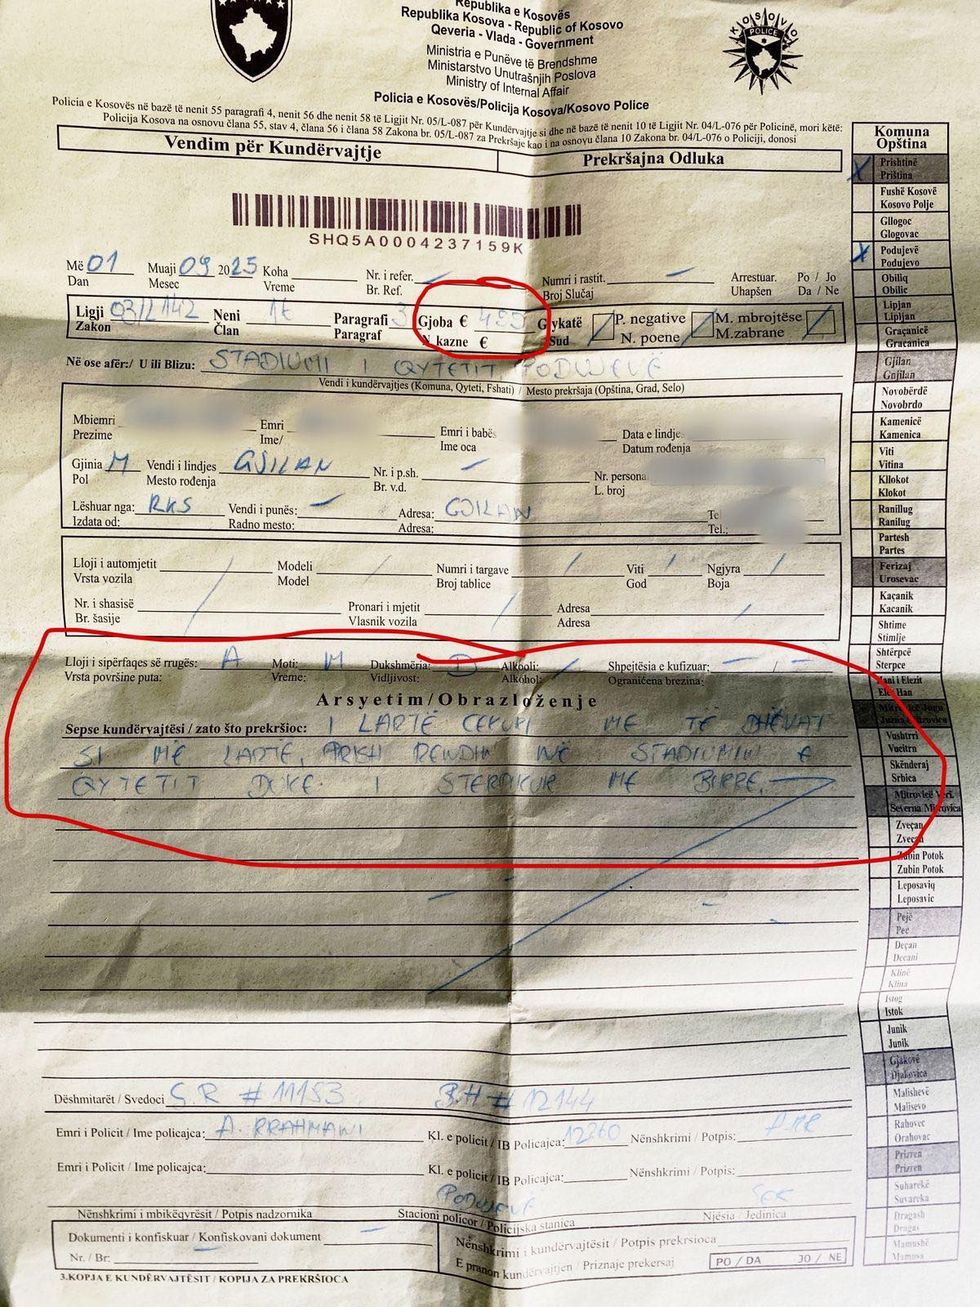 Republika e Kosovës
Republika Kosova - Republic of Kosovo
Qeveria - Vlada - Government
Ministria e Punëve të Brendshme
Ministarstvo Unutrašnjih Poslova
Ministry of Internal Affair
Policia e Kosovës/Policija Kosova/Kosovo Police
KOSOVO
POLICE
Policia e Kosovës në bazë të nenit 55 paragrafi 4, nenit 56 dhe nenit 58 të Ligjit Nr. 05/L-087 për Kundërvajtje si dhe në bazë të nenit 10 të Ligjit Nr. 04/L-076 për Policinë, mori këte:
Policija Kosova na osnovu člana 55, stav 4, člana 56 i člana 58 Zakona br. 05/L-087 za Prekršaje kao i na osnovu člana 10 Zakona br. 04/L-076 o Policiji, donosi
Vendim për Kundërvajtje Prekršajna Odluka
SHQ5A0004237159K
Më 01 Muaji 09 2025 Koha Nr. i refer. Numri i rastit. Arrestuar. Po / Jo
Dan Mesec Vreme Br. Ref. Broj Slučaj Uhapšen Da / Ne
Ligji 03/L142 Neni Paragrafi 3 Gjoba € Gjykatë P. negative M. mbrojtëse
Zakon Član Paragraf N. kazne € Sud N. poene M.zabrane
Në ose afër:/ U ili Blizu: STADIUMI I QYTETIT PODUJEVË
Vendi i kundërvajtjes (Komuna, Qyteti, Fshati) / Mesto prekršaja (Opština, Grad, Selo)
Mbiemri Emri Emri i babës Data e lindje
Prezime Ime/ Ime oca Datum rođenja
Gjinia M Vendi i lindjes GJILAN Nr. i p.sh. Nr. persona
Pol Mesto rođenja Br. v.d. L. broj
Lëshuar nga: RKS Vendi i punës: Adresa: GJILAN Te
Izdata od: Radno mesto: Adresa: Tel.:
Lloji i automjetit Modeli Numri i targave Viti Ngjyra
Vrsta vozila Model Broj tablice God Boja
Nr. i shasisë Pronari i mjetit Adresa
Br. šasije Vlasnik vozila Adresa
Lloji i sipërfaqes së rrugës: A Moti: M Dukshmëria: D Alkooli: Shpejtësia e kufizuar:
Vrsta površine puta: Vreme: Vidljivost: Alkohol: Ograničena brezina:
Arsyetim/Obrazloženje
Sepse kundërvajtësi / zato što prekršioc: I LARTË CEKURI ME TË DHËNAT
SI MË LARTË, PRISH RENDIN NË STADIUMIN E
QYTETIT DUKE I STERPIKUR ME BIRRE.
Dëshmitarët / Svedoci S.R # 11153 B.H # 12144
Emri i Policit / Ime policajca: A. RRAHMANI Kl. e policit / IB Policajca: 12260 Nënshkrimi / Potpis:
Emri i Policit / Ime policajca: Kl. e policit / IB Policajca: Nënshkrimi / Potpis:
PODUJEVË
Nënshkrimi i mbikëqyrësit / Potpis nadzornika Stacioni policor / Policijska stanica Njësia / Jedinica
Dokumenti i konfiskuar / Konfiskovani dokument Nënshkrimi i kundërvajtësit / Potpis prekrsioca
Nr. / Br: E pranon kundërvajtjen / Priznaje prekersaj PO / DA JO / NE
3.KOPJA E KUNDËRVAJTËSIT / KOPIJA ZA PREKRŠIOCA
Komuna
Opština
Prishtinë
Priština
Fushë Kosovë
Kosovo Polje
Gllogoc
Glogovac
Podujevë
Podujevo
Obiliq
Obilic
Lipjan
Lipljan
Graçanicë
Gracanica
Gjilan
Gnjilan
Novobërdë
Novobrdo
Kamenicë
Kamenica
Viti
Vitina
Kllokot
Klokot
Ranillug
Ranilug
Partesh
Partes
Ferizaj
Urosevac
Kaçanik
Kacanik
Shtime
Stimlje
Shtërpcë
Sterpce
Hani i Elezit
Elez Han
Mitrovicë Jugu
Juzna Mitrovica
Vushtrri
Vucitrn
Skënderaj
Srbica
Mitrovicë Veri.
Severna Mitrovica
Zveçan
Zvecan
Zubin Potok
Zubin Potok
Leposaviq
Leposavic
Pejë
Pec
Deçan
Decani
Klinë
Klina
Istog
Istok
Junik
Junik
Gjakovë
Djakovica
Malishevë
Malisevo
Rahovec
Orahovac
Prizren
Prizren
Suharekë
Suvareka
Dragash
Dragas
Mamushë
Mamusa